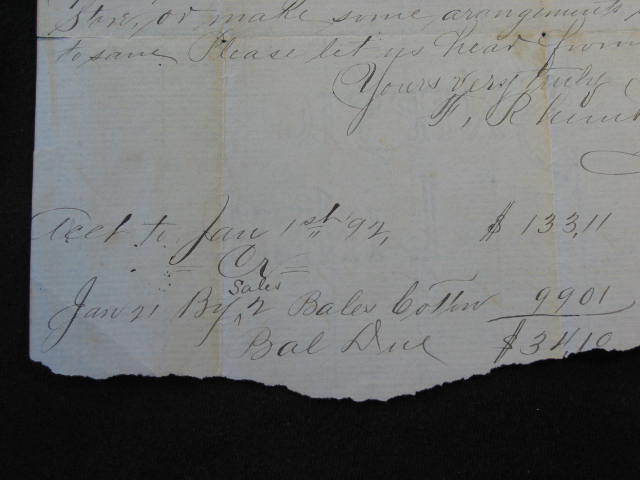 Store, or make some arangements
to save Please let us hear from
Yours very truly
F,
Acct to Jan 1st 92, $ 133,11
Cr
Sales
Jan 21 By ^ 2 Bales Cotton 9901
Bal Due $34,10